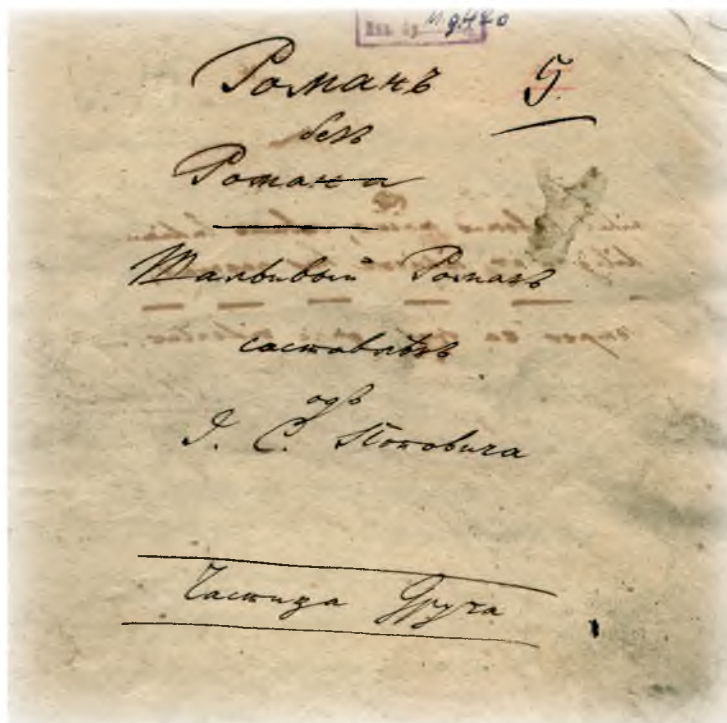 М. д. 420
Романъ 5.
без
Романа
Шальивый Романъ
составлѣнъ
одъ
J. С. Поповића
Частица Друга